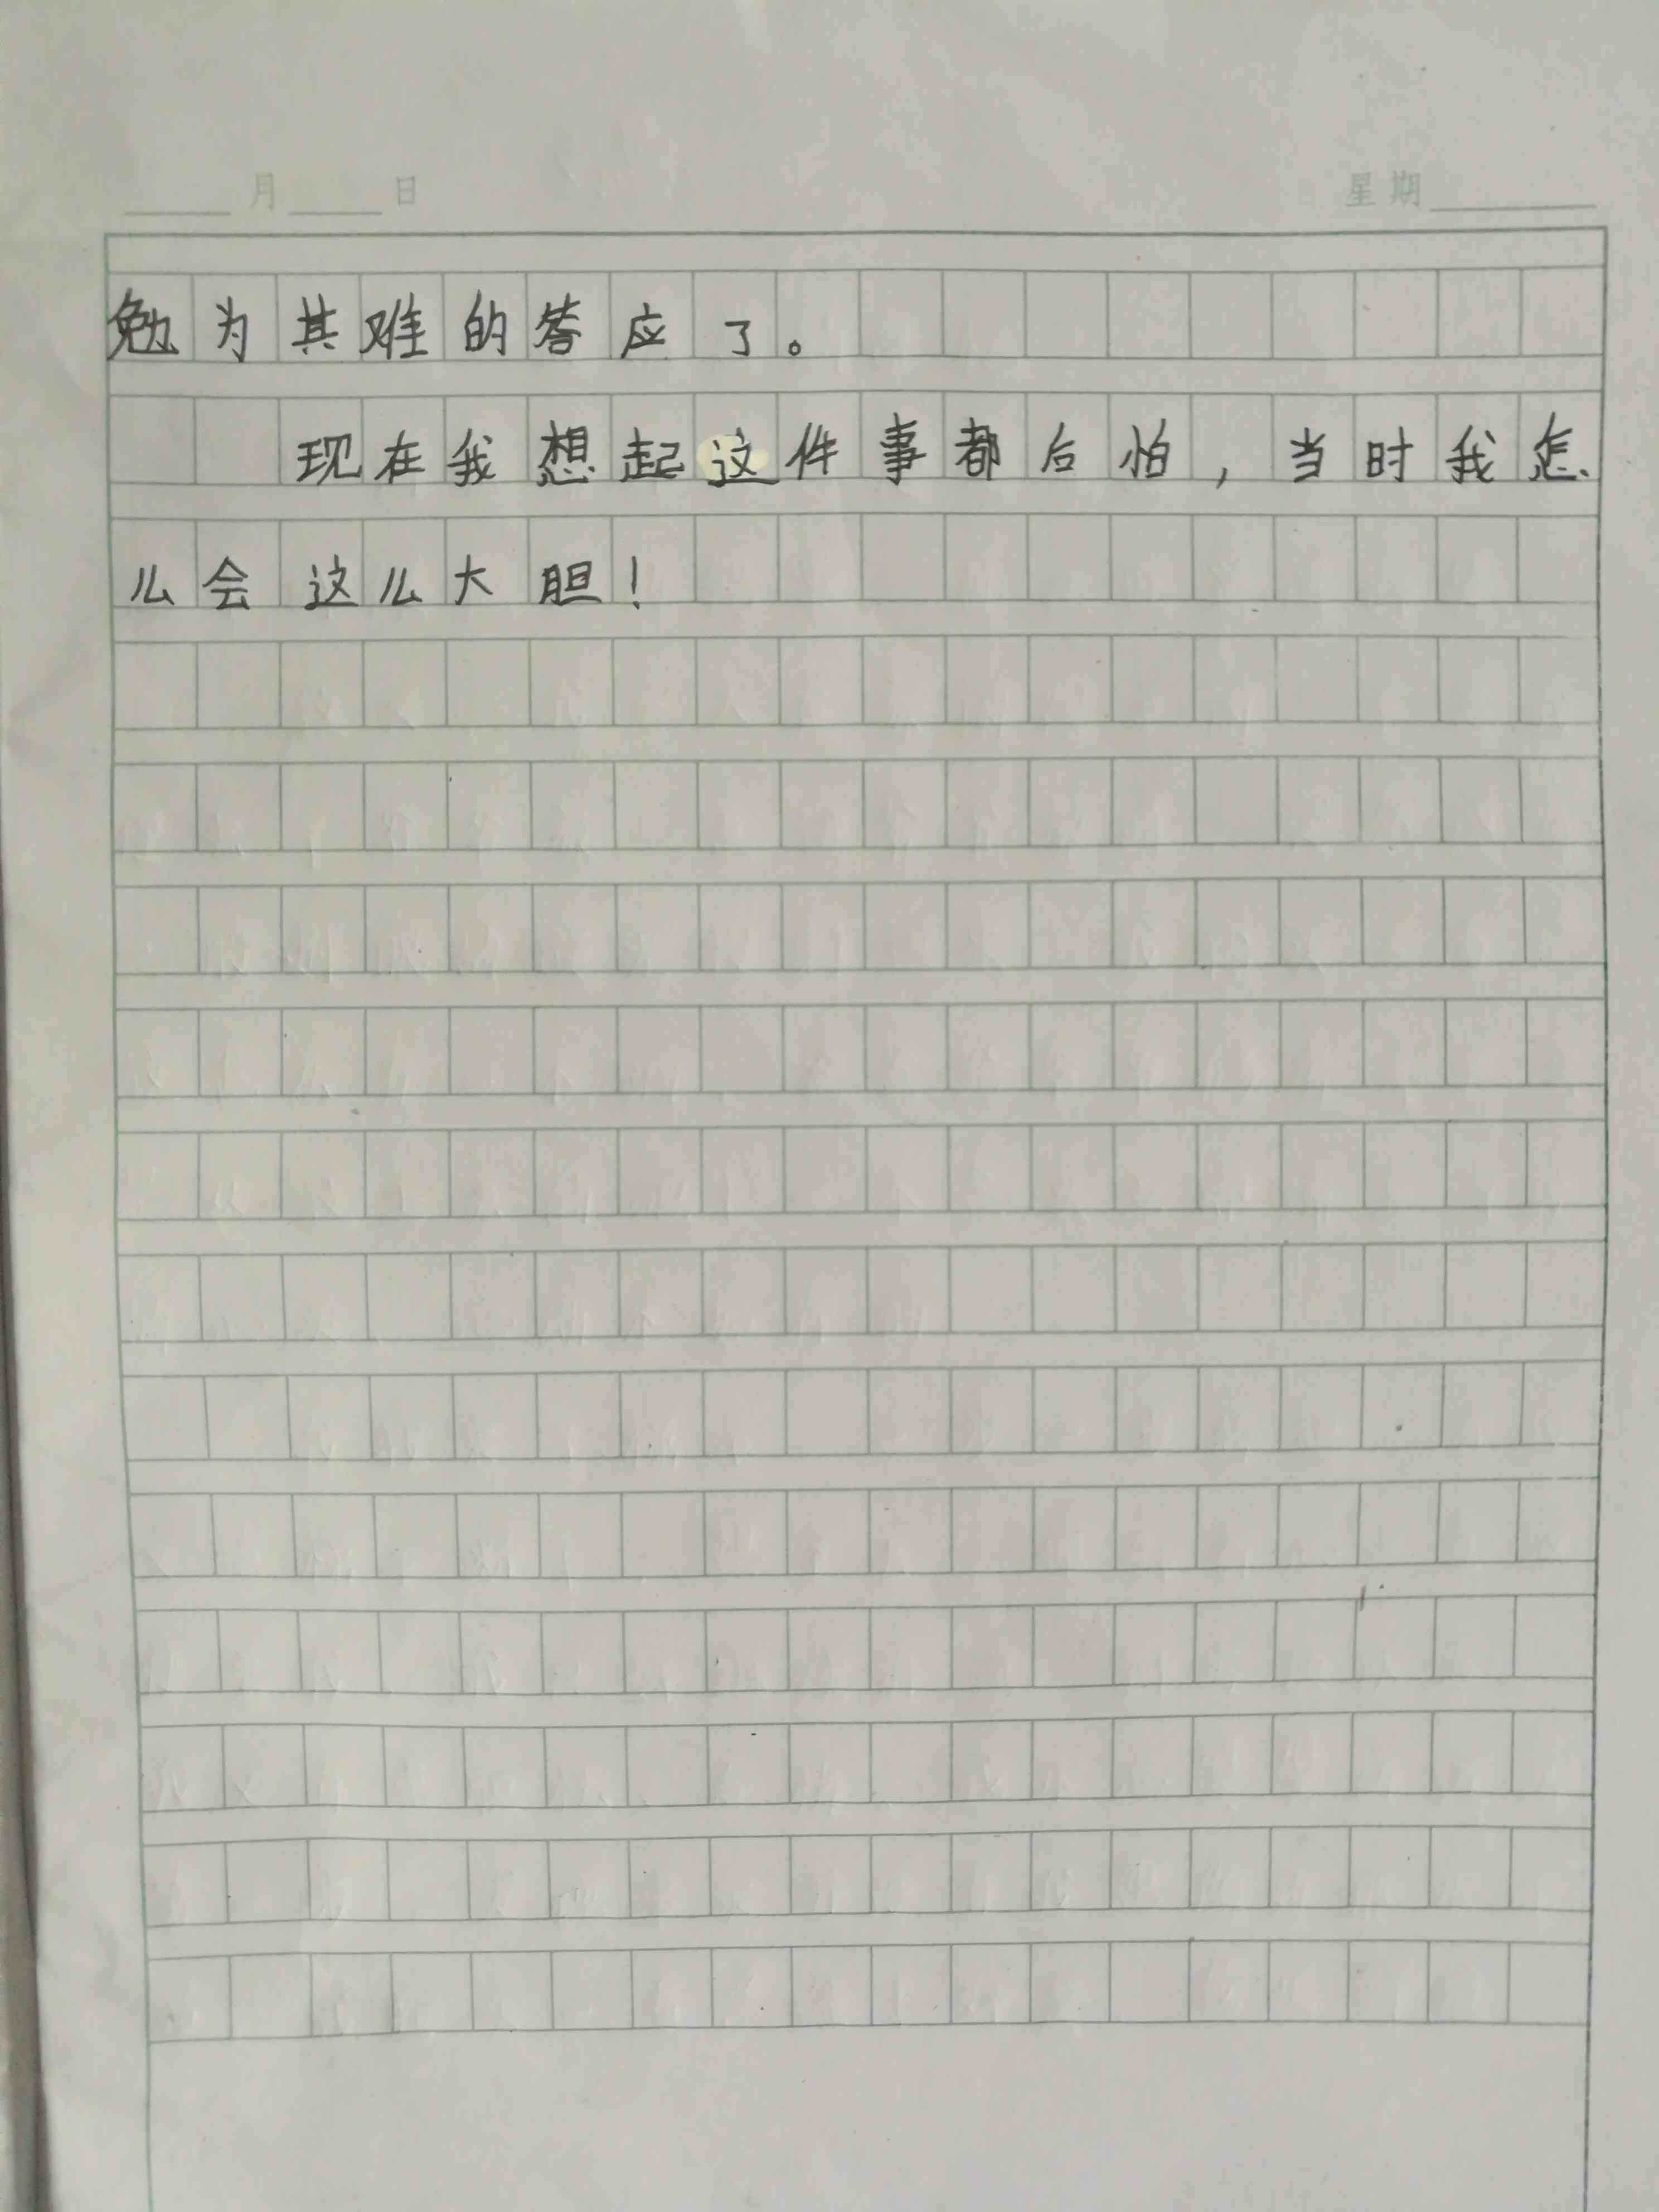 月 日 星期
勉为其难的答应了。
现在我想起这件事都后怕,当时我怎
么会这么大胆!